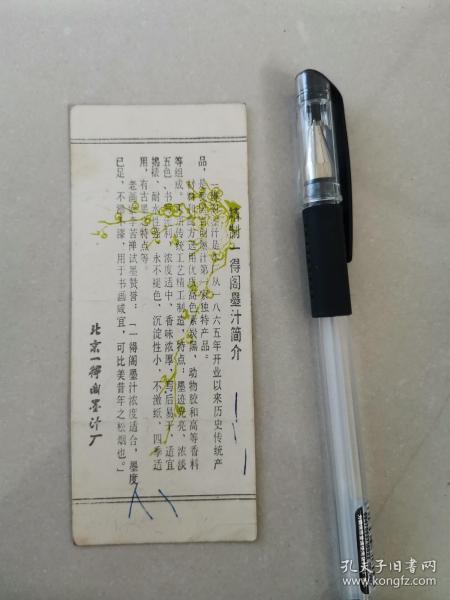 精制一得阁墨汁简介
一得阁墨汁是 从一八六五年开业以来历史传统产
品，是 制墨汁第一 独特产品。
选用优质高色素炭黑，动物胶和高等香料
等组成。 传统工艺精工制造。特点：墨迹光亮，浓淡
五色，书写 利，浓度适中，香味浓厚，写后易干，适宜
揭裱，耐水性 永不褪色，沉淀性小，不洇纸，四季适
用，有古墨 特点等。
老画 苦禅试墨赞誉：「一得阁墨汁浓度适合，墨度
已足，不 滞 ，用于书画咸宜，可比美昔年之松烟也。」
北京一得阁墨汁厂
孔夫子旧书网
www.kongfz.com